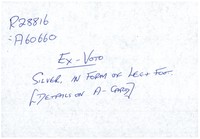 R28816
:A60660
Ex-Voto
Silver, in form of left foot.
[Details on A-card]